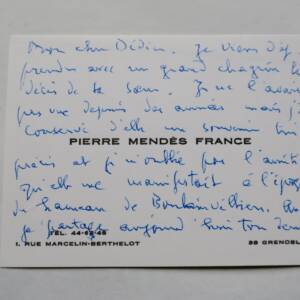 Mon cher Didier. Je viens d'ap
prendre avec un grand chagrin le
décès de ta sœur. Je ne l'avais
pas vue depuis des années mais j'
conservé d'elle un souvenir
PIERRE MENDÈS FRANCE
précis et je n'oublie pas l'amitié
qu'elle me manifestait à l'époque
du hameau de Boulainvilliers.
je partage aujourd'hui ton
TÉL. 44-62-45
1, RUE MARCELIN-BERTHELOT
38 GRENOBL